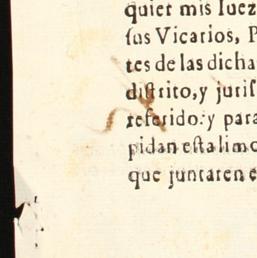 quier mis Iuez
ſus Vicarios, P
tes de las dicha
diſtrito, y juriſ
referido: y para
pidan eſta limo
que juntaren e